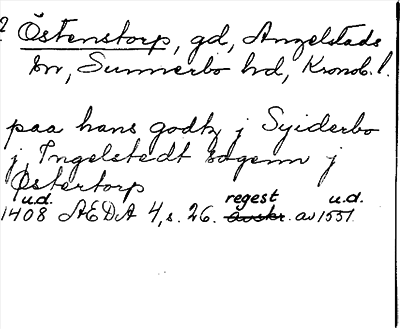 Östenstorp, gd, Angelstads
sn, Sunnerbo hd, Kronob. l.
paa hans godtz j Syiderbo
j Ingelstedt sogenn j
Østertorp
u.d. regest u.d.
1408 AEDA 4, s. 26. avskr. av 1551.